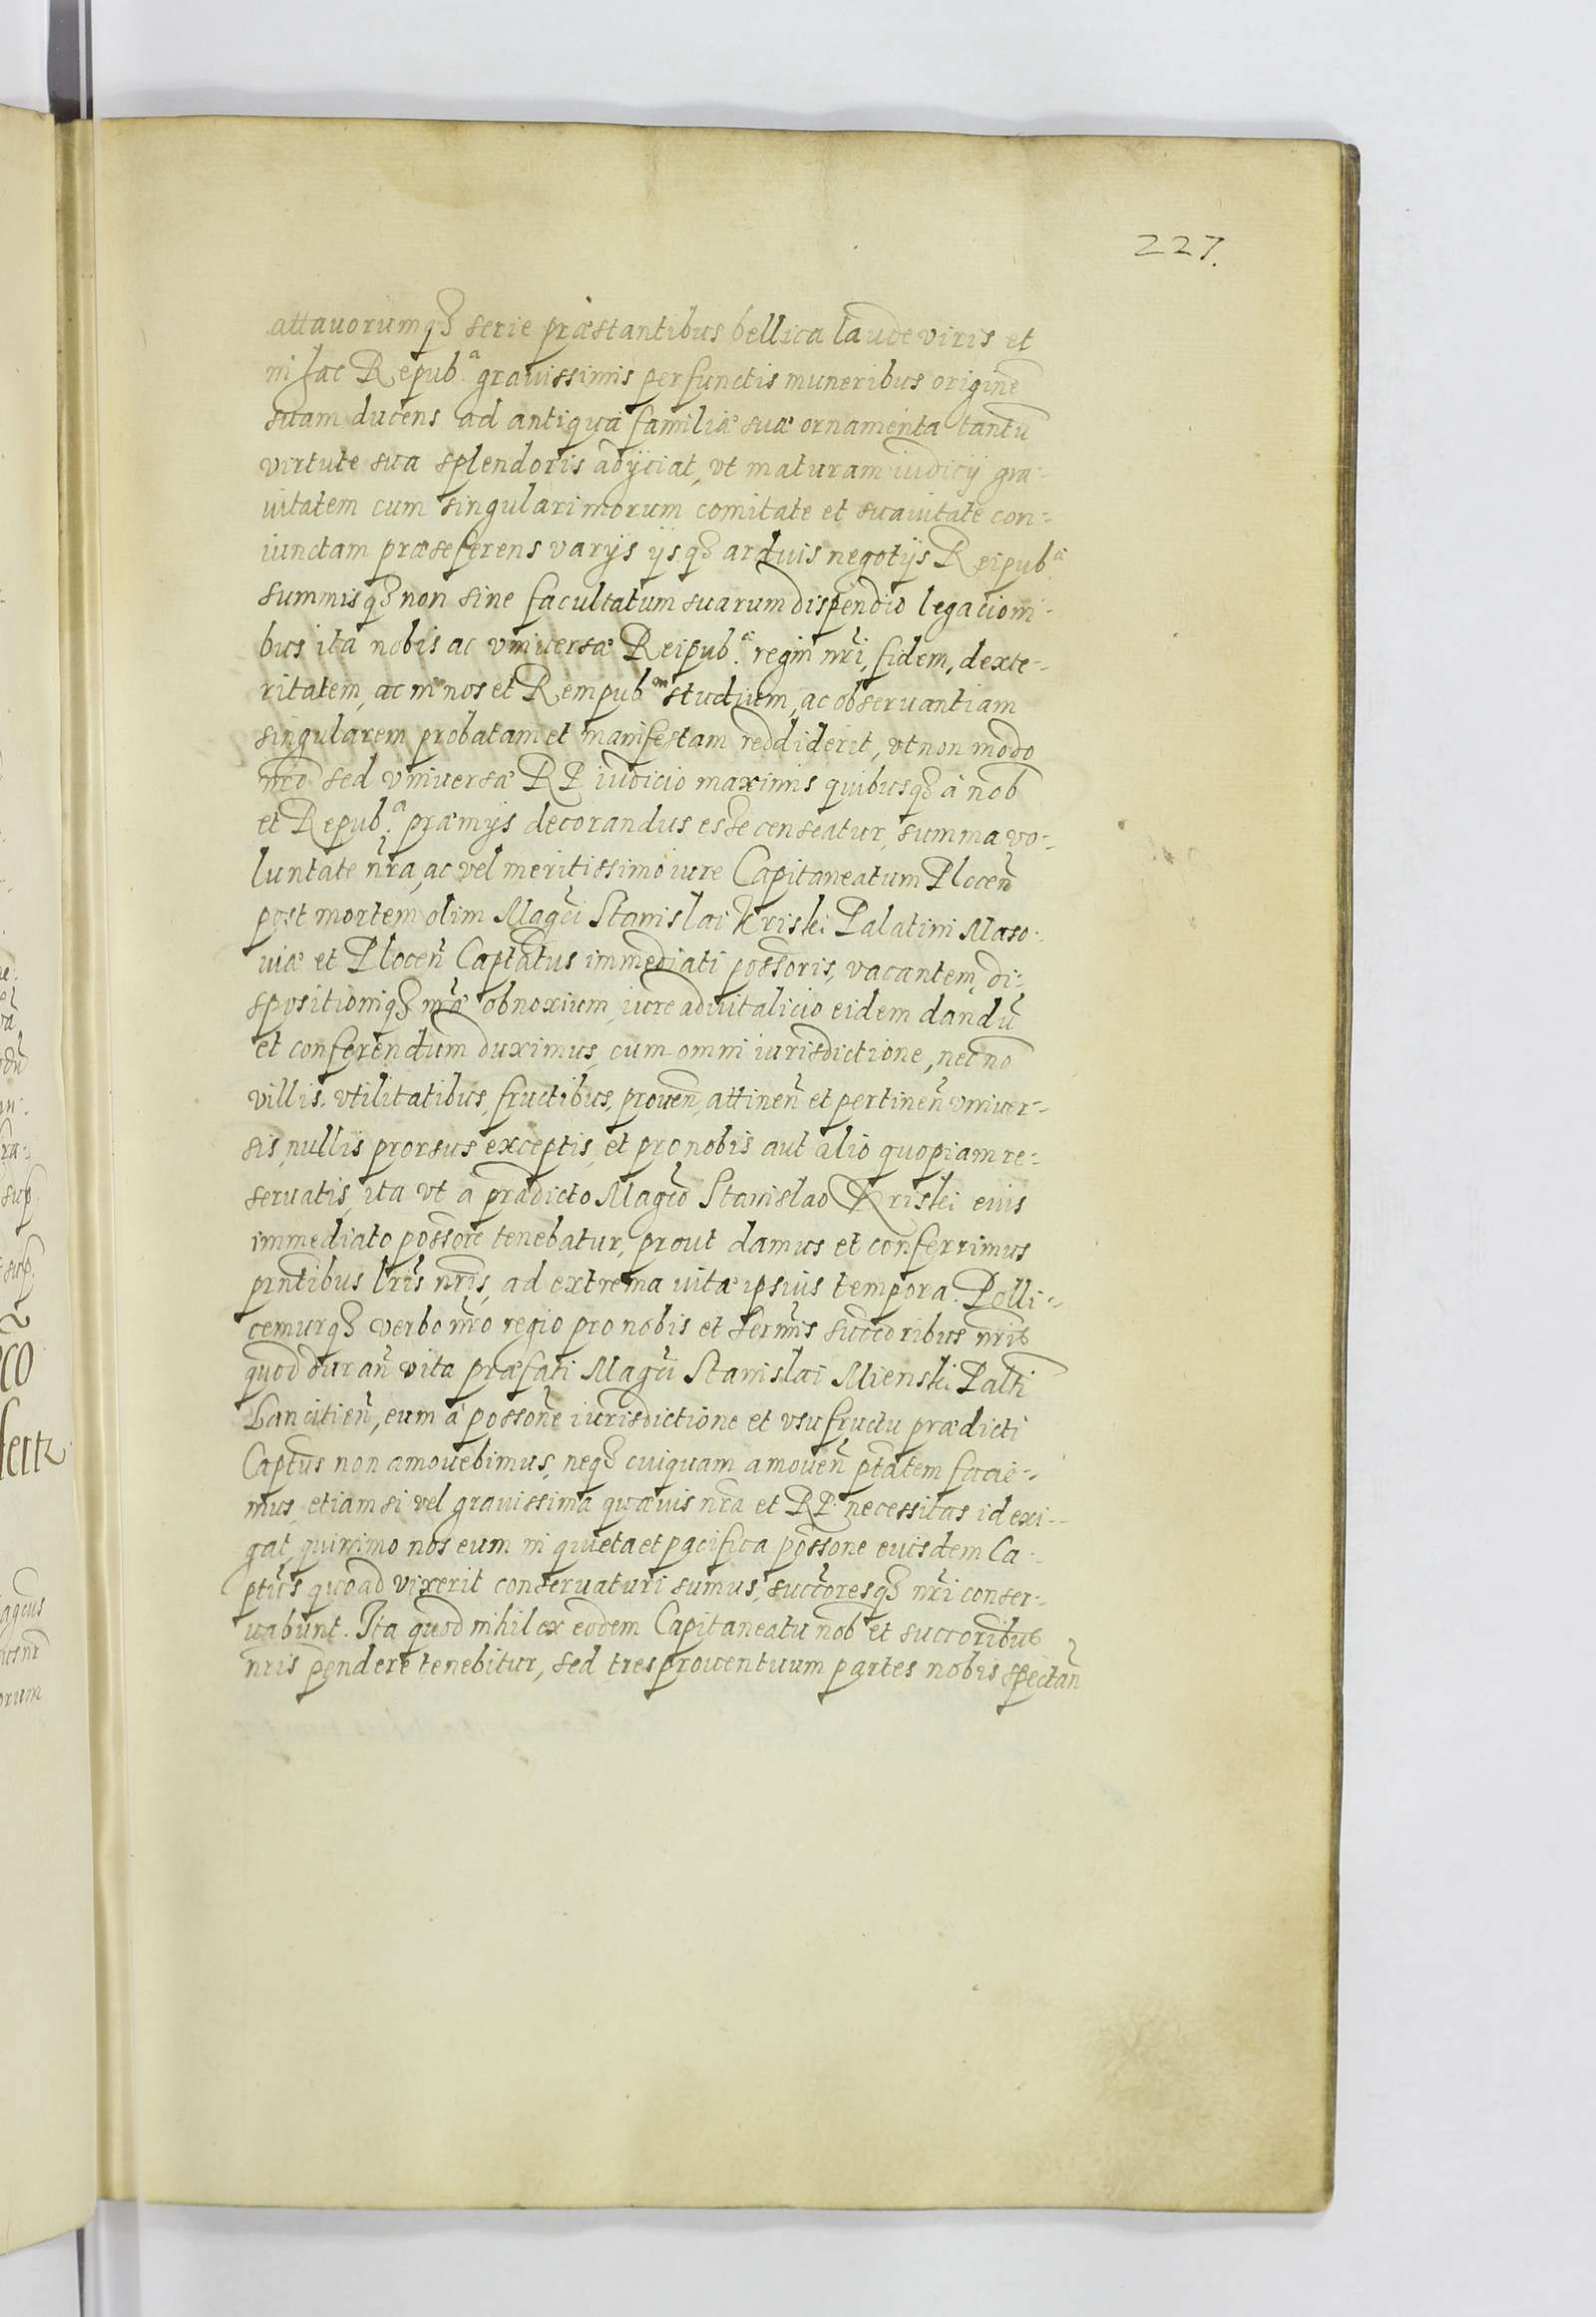 227.
attauorumq3 serie præstantibus bellica laude viris et
in hac Repub.ᵃ grauissimis perfunctis muneribus origine
suam ducens ad antiqua familiæ suæ ornamenta tantū
virtute sua splendoris adijciat, vt maturam iudicij gra-
uitatem cum singulari morum comitate et suauitate con-
iunctam præseferens varijs ijsq3 arduis negotijs Reipub.ᵃ
summisq3 non sine facultatum suarum dispendio legacioni-
bus ita nobis ac vniuersæ Reipub.ᵃ regin nr̃i, fidem, dexte-
ritatem, ac in nos et Rempubᵐ studium, ac obseruantiam
singularem probatam et manifestam reddiderit, vt non modo
nr̃o sed vniuersæ RP iudicio maximis quibusq3 à nob̃
et Repub.ᵃ præmijs decorandus esse censeatur, summa vo-
luntate nr̃a, ac vel meritissimo iure Capitaneatum Plocen̄
post mortem olim Magci Stanislai Kriski Palatini Maso-
uiæ et Plocen̄ Captatus immediati possoris, vacantem, di-
spositioniq3 nr̃æ obnoxium, iure aduitalicio eidem dandū
et conferendum duximus, cum omni iurisdictione, nec no
villis, vtilitatibus, fructibus, prouen̄, attinen̄ et pertinen̄ vniuer-
sis, nullis prorsus exceptis, et pro nobis aut alio quopiam re-
seruatis, ita vt a prædicto Magco Stanislao Kriski euis
immediato possore tenebatur, prout damus et conferrimus
pntibus lr̃is nr̃is, ad extrema uitæ ipsius tempora. Polli-
cemurq3 verbo nr̃o regio pro nobis et Sermis succoribus nr̃is
quod duran̄ vita præfati Magci Stanislai Minski Palti
Lancitien̄, eum à possone iurisdictione et vsufructu prædicti
Captus non amouebimus, neq3 cuiquam amouen̄ ptatem facie-
mus, etiamsi vel grauissima quæuis nr̃a et RP. necessitas id exi-
gat, quinimo nos eum in quieta et pacifica possone euisdem Ca-
ptus quoad vixerit conseruaturi sumus, succoresq3 nr̃i conser-
uabunt. Ita quod nihil ex eodem Capitaneatu nob̃ et succoribus
nr̃is pendere tenebitur, sed tres prouentuum partes nobis spectan̄